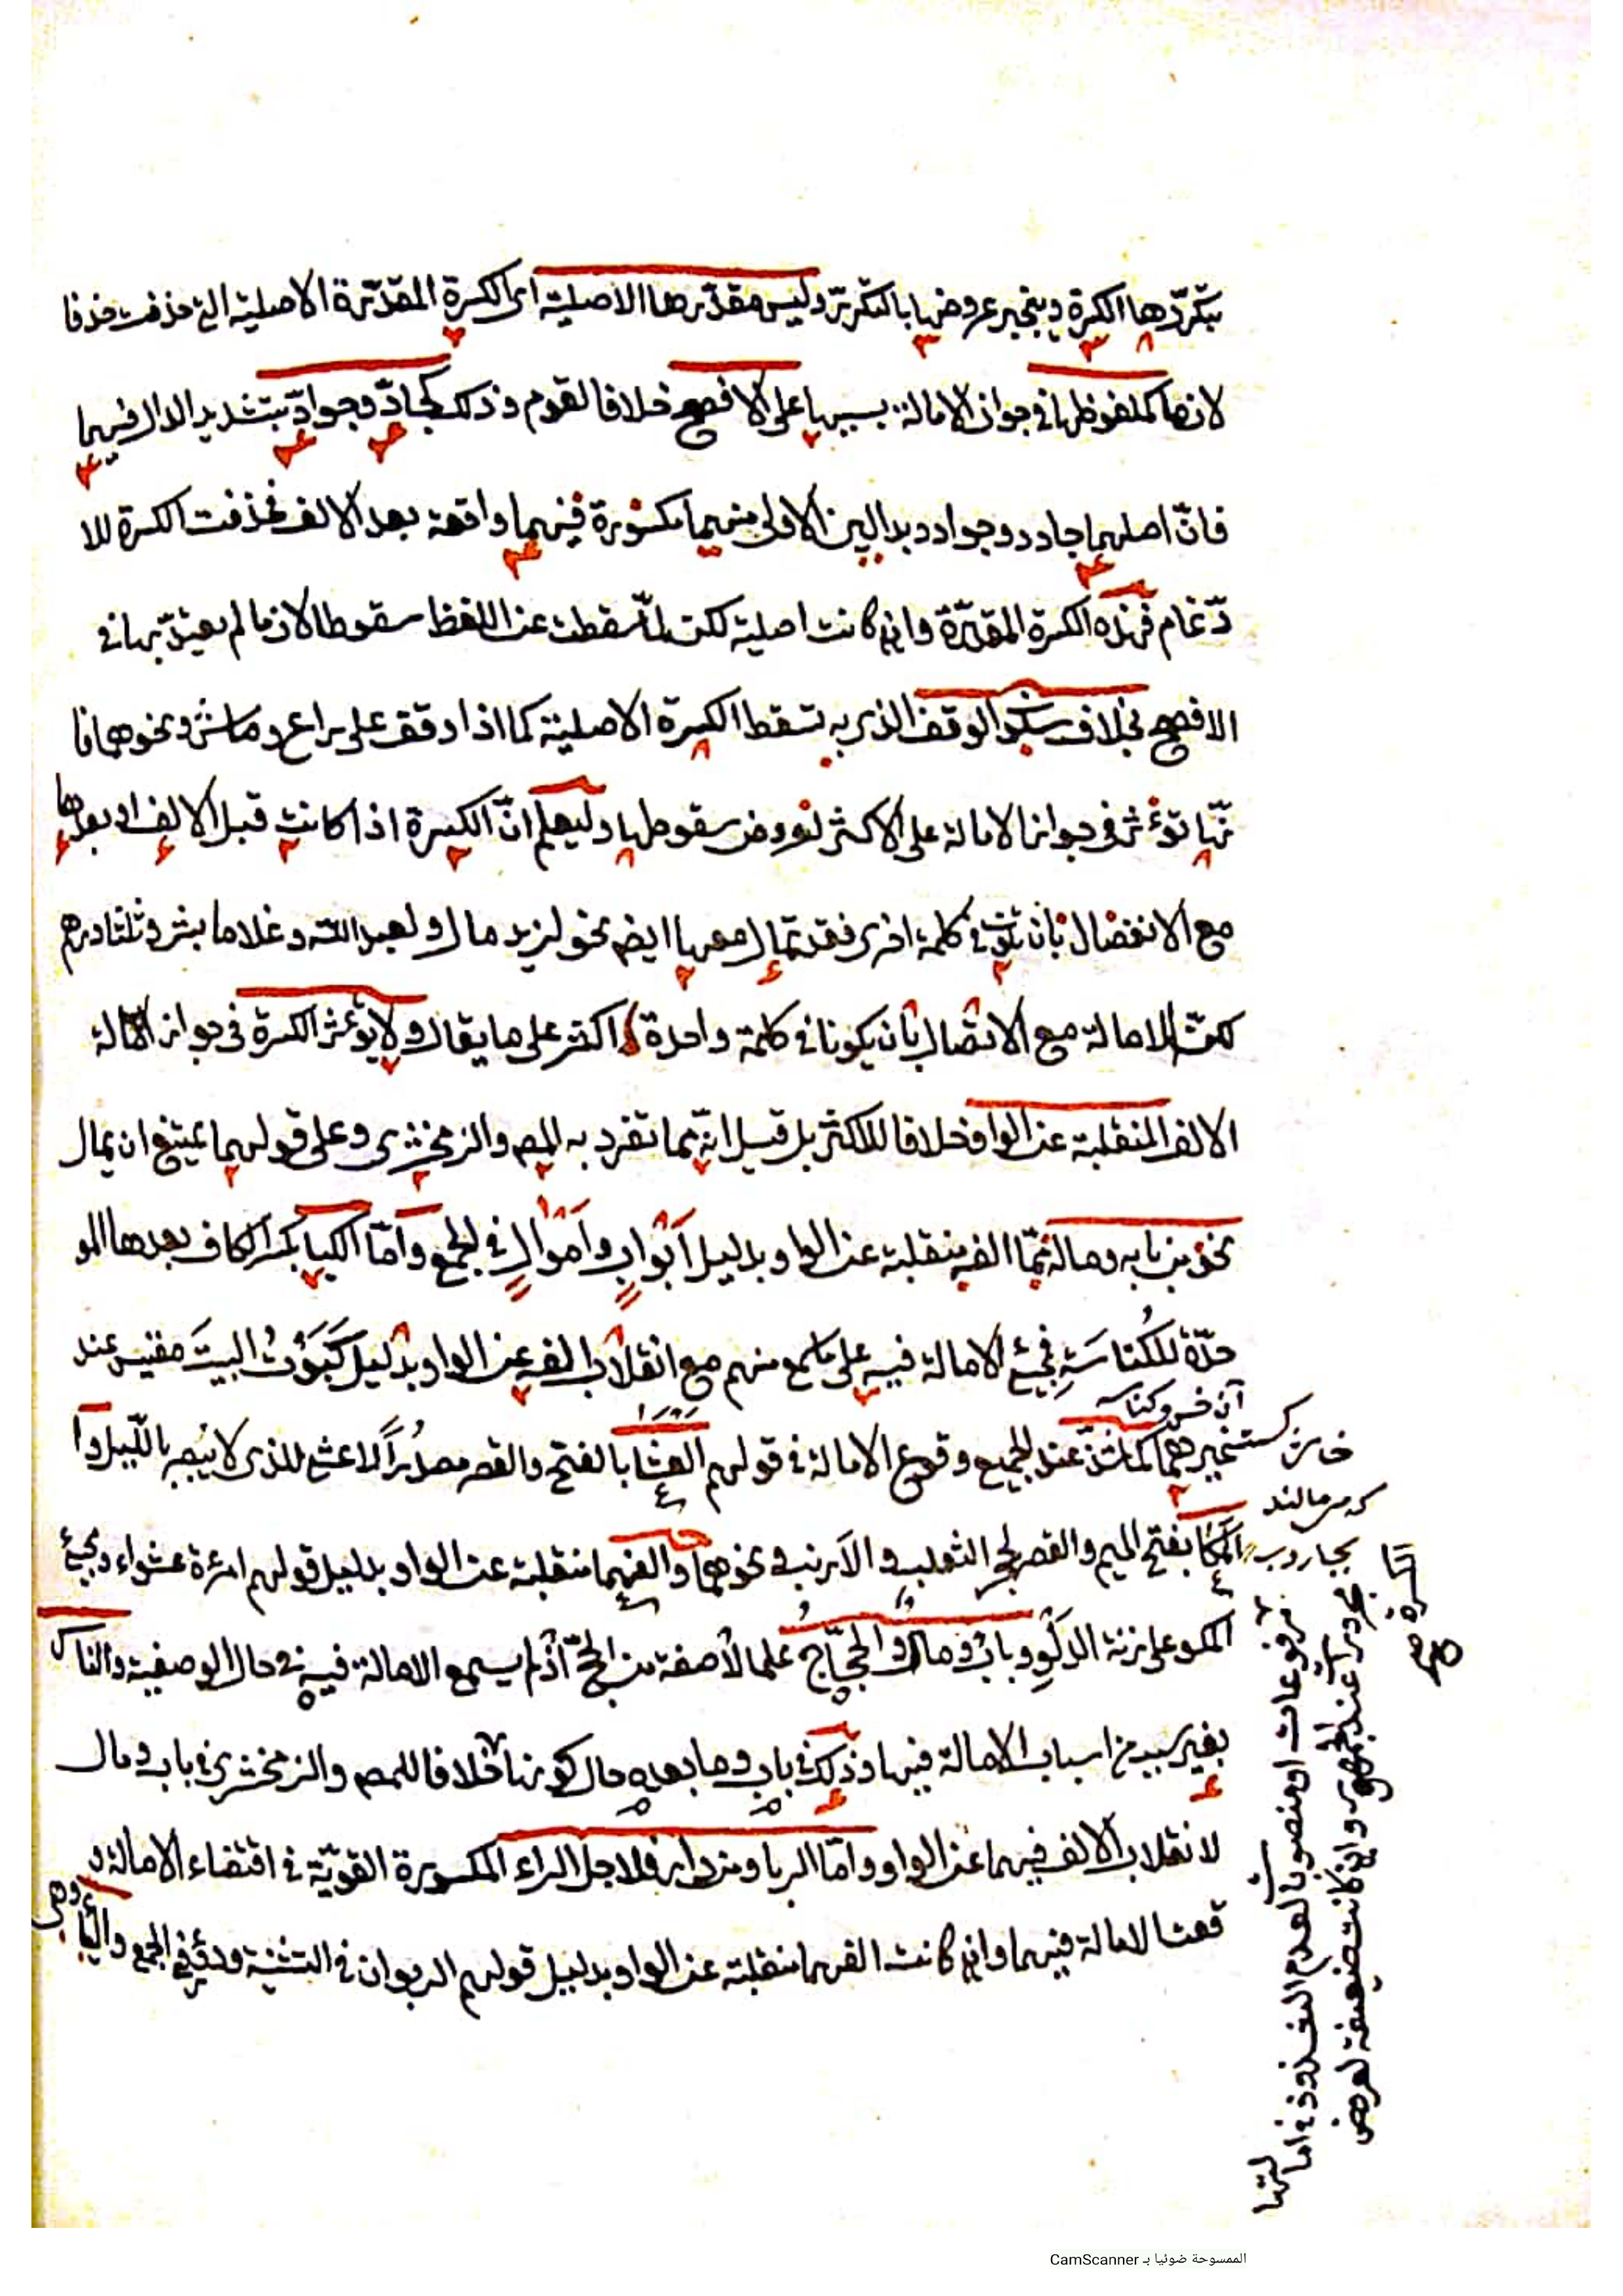 بتكررها الكسرة وينجبر عروضها بالتكرير وليس مقدرها الاصلية اى الكسرة المقدّرة الاصلية التى حذفت حذفا
لازما كملفوظها فى جواز الامالة بسببها على الافصح خلافا لقوم وذلك كجادّ وجوادّ بتشديد الدال فيهما
فانّ اصلهما جادد وجوادد بدالين الاولى منهما مكسورة فيهما واقعة بعد الالف فحذفت الكسرة للا
دّغام فهذه الكسرة المقدّرة وان كانت اصلية لكن لمّا سقطت عن اللفظ سقوطا لازما لم يعتدّ بها فى
الافصح بخلاف سكون الوقف الذى به تسقط الكسرة الاصلية كما اذا وقف على راع وماش ونحوهما فا
نّها تؤثر فى جواز الامالة على الاكثر لعروض سقوطها وليعلم انّ الكسرة اذا كانت قبل الالف او بعدها
مع الانفصال بأن تكون فى كلمة اخرى فقد تمال معها ايضا نحو لزيد مال ولعبد الله وغلاما بشر وثلثا درهم
لكن الامالة مع الاتصال بان يكونا فى كلمة واحدة اكثر على ما يقال ولا يؤثر الكسرة فى جواز امالة
الالف المنقلبة عن الواو خلافا للاكثر بل قيل انّه مما تفرد به المصـ والزمخشرى وعلى قولهما يمتنع ان يمال
نحو من بابه وماله ممّا الفه منقلبة عن الواو بدليل أبْوابٍ وأمْوالٍ فى الجمع وأمّا الكبا بكسر الكاف بعدها المو
حدّة للكُناسَةِ فمجئ الامالة فيه على ما سمع منهم مع انقلاب الفه عن الواو بدليل كَبَوْتُ البيت مقيس عند
غيرهما كما شذّ عند الجميع وقوع الامالة فى قولهم العشا بالفتح والقصر مصدراً لاعشى للذى لا يبصر بالليل وا
المكا بفتح الميم والقصر لجحر الثعلب والأرنب ونحوهما والفهما منقلبة عن الواو بدليل قولهم امرءة عشواء ومجئ
المكو على زنة الدلو وباب ومال والحجّاج علما لا صفة من الحجّ اذ لم يسمع الامالة فيه فى حال الوصفية والناس
بغير سبب من اسباب الامالة فيها وذلك فى باب وما بعده حال كونها خلافا للمصـ والزمخشرى فى باب ومال
لانقلاب الالف فيهما عن الواو وامّا الربا ومن دار فلاجل الراء المكسورة القويّة فى اقتضاء الامالة و
قعت الامالة فيهما وان كانت الفهما منقلبة عن الواو بدليل قولهم الربوان فى التثنية ودور فى الجمع
مرفوعات او منصوبا لعدم
عند الجمهور وان كانت ضعيفة لعروض
الممسوحة ضوئيا بـ CamScanner